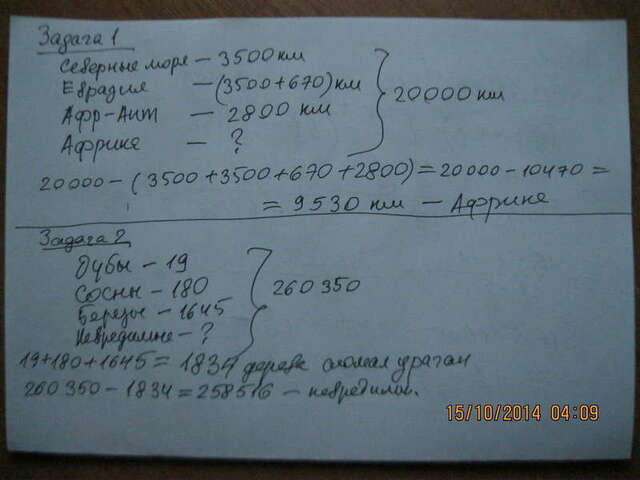 Задача 1
Северные море – 3500 км
Евразия – (3500+670) км
Афр-Ант – 2800 км
Африка – ?
20000 км
20000 – (3500+3500+670+2800) = 20000 – 10470 =
= 9530 км – Африка
Задача 2
Дубы – 19
Сосны – 180
Березы – 1645
Невредимые – ?
260 350
19+180+1645 = 1834 дерева сломал ураган
260 350 – 1834 = 258516 – невредимы.
15/10/2014 04:09